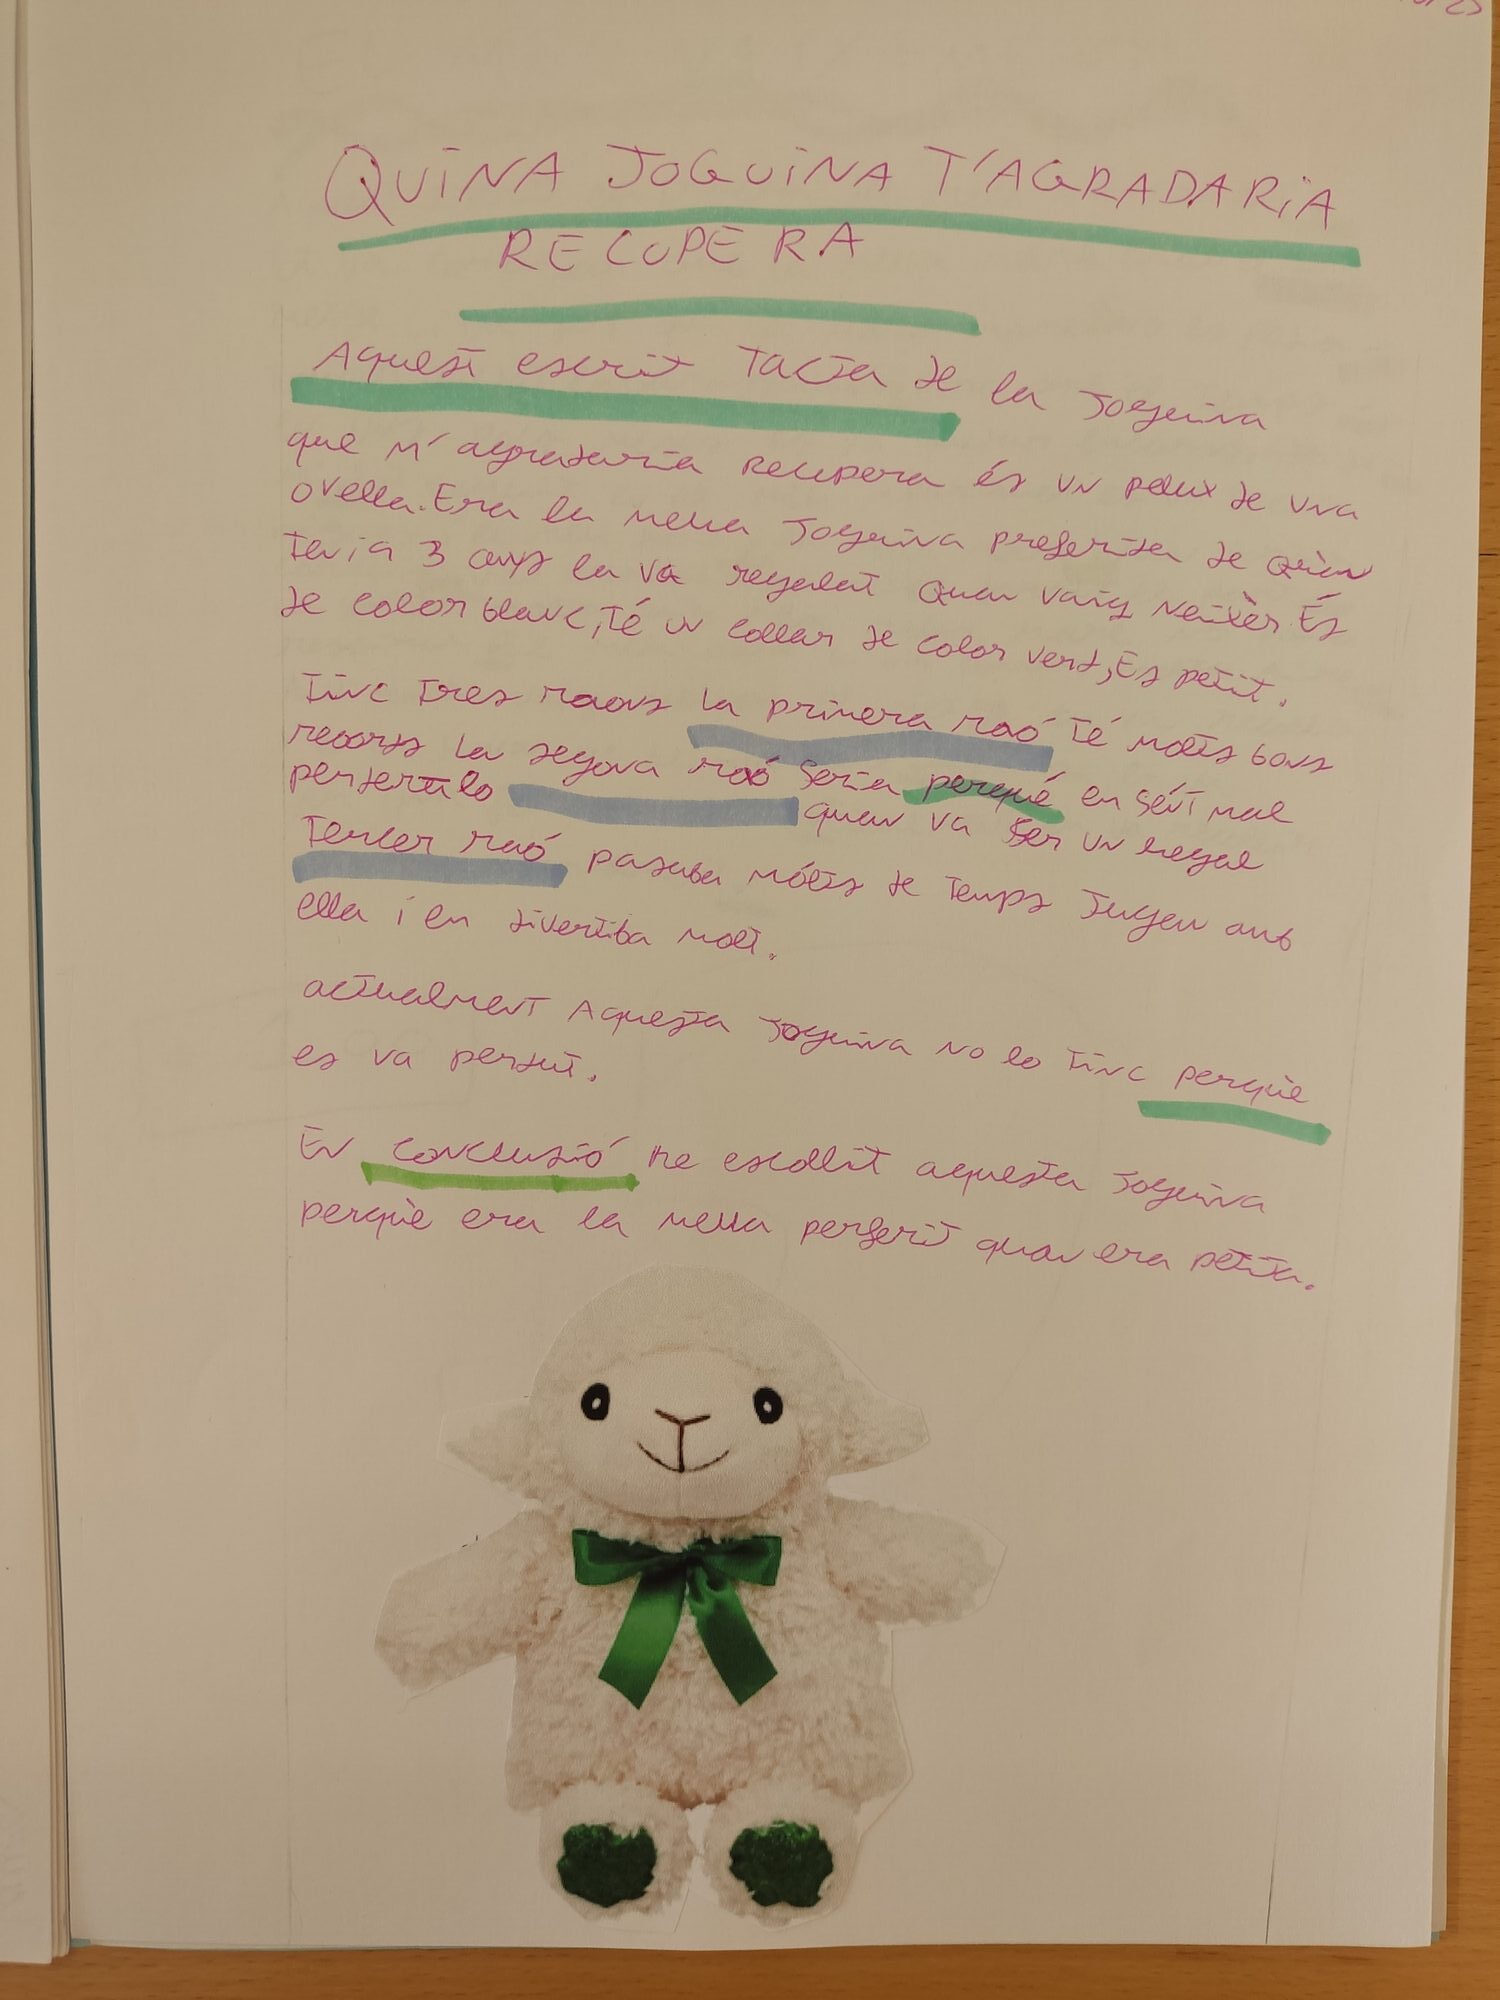 QUINA JOGUINA T'AGRADARIA
RECUPERA
Aquest escrit tacta de la joguina
que m'agradaria recupera és un pelux de una
ovella. Era la meua joguina preferida de quan
tenia 3 anys la va regalat quan vaig neixèr. És
de color blanc, té un collar de color verd, Es petit.
Tinc tres raons la primera raó té molts bons
recorps la segona raó seria perqué en sént mal
perdertlo quan va ser un regal
tercer raó pasaba mólts de temps jugan amb
ella i em divertiba molt.
actualment Aquesta joguina no lo tinc perquè
es va perdut.
En conclusió he escollit aquesta joguina
perquè era la meua perferit quan era petita.